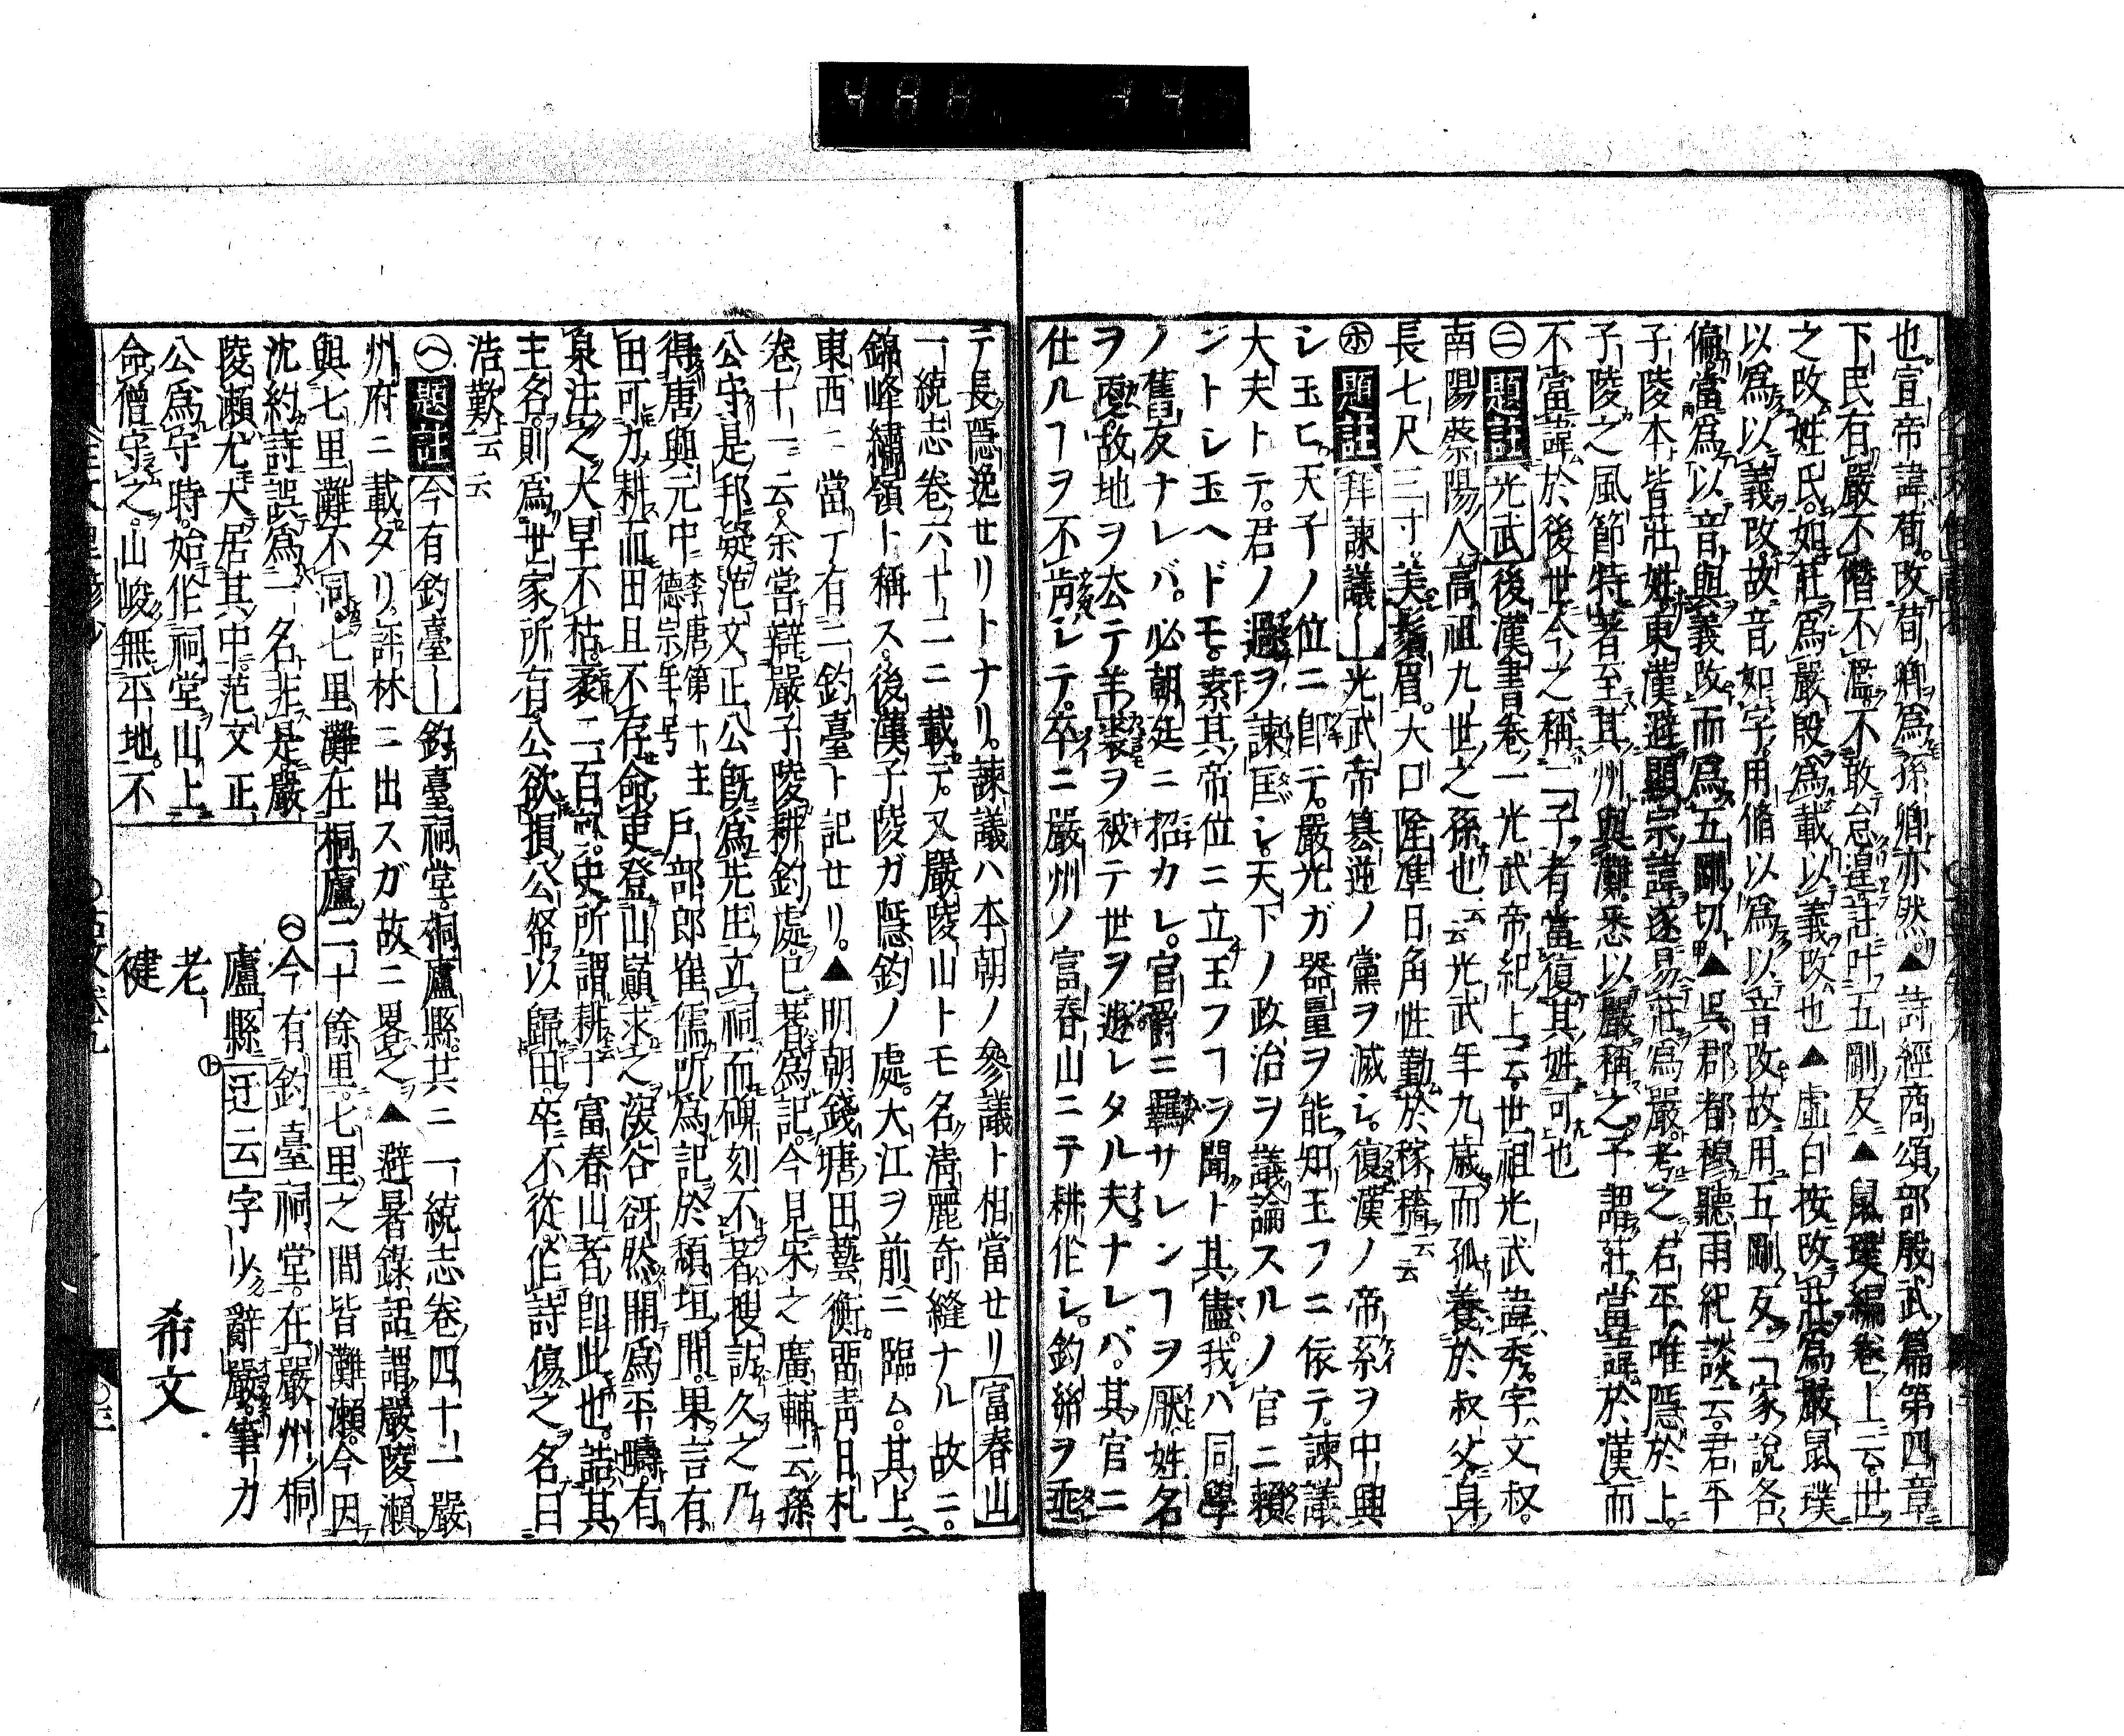 也宣帝諱荀改荀卿爲孫卿亦然▲詩經商頌部殷武篇第四章
下民有嚴不僭不濫不敢怠遑註叶五剛反▲鼠璞編卷上云世
之改姓氏如莊爲嚴殷爲載以義改也▲虛白按改莊爲嚴鼠璞
以爲以義改故音如字用脩以爲以音改故用五剛反二家說各
偏當爲以音與義改而爲五剛切▲吳郡都穆聽雨紀談云君平
子陵本皆莊姓東漢避顯宗諱遂易莊爲嚴老之君平唯隱於上
子陵之風節特著至其州與灘悉以嚴稱之予謂莊當諱於漢而
不當諱於後世今之稱二子者當復其姓可也
㊁題註光武後漢書卷一光武帝紀上云世祖光武諱秀字文叔
南陽蔡陽人高祖九世之孫也云云光武年九歲而孤養於叔父身
長七尺三寸美鬚眉大口隆準日角性勤於稼穡云云
㋭題註拜諫議〡光武帝簒逆ノ黨ヲ滅シ復漢ノ帝系ヲ中興
シ玉ヒ天子ノ位ニ卽テ嚴光ガ器量ヲ能知玉フニ依テ諫議
大夫トテ君ノ過ヲ諫匡シ天下ノ政治ヲ議論スルノ官ニ賴
ントシ玉ヘドモ素其帝位ニ立玉フヿヲ聞ト其儘我ハ同學
ノ舊友ナレバ必朝廷ニ招カレ官爵ニ羈サレンヿヲ厭姓名
ヲ變故地ヲ去テ羊裘ヲ被テ世ヲ遊レタル夫ナレバ其官ニ
仕ルヿヲ不肯シテ卒ニ嚴州ノ富春山ニテ耕作シ釣絲ヲ垂
テ長隱逸セリトナリ諫議ハ本朝ノ參議ト相當セリ富春山
一統志卷六十二ニ載テ又嚴陵山トモ名淸麗奇縫ナル故ニ
錦峰繡嶺ト稱ス後漢子陵ガ隱釣ノ處大江ヲ前ニ臨ム其上
東西ニ當テ有二釣臺ト記セリ▲明朝錢塘田藝衡畱靑日札
卷十一云余嘗辯嚴子陵耕釣處已著爲記今見宋之廣輔云孫
公守是邦疑范文正公旣爲先生立祠而碑刻不著搜訪久之乃
得唐興元中李唐第十主德宗年号戶部郎崔儒所爲記於頹垣間果言有
田可力耕而田且不存命吏登山巓求之深谷谺然開爲平疇有
泉注之大旱不枯袤二百畝史所謂耕于富春山者卽此也詰其
主名則爲世家所有公欲損公帑以歸田卒不從作詩傷之名曰
浩歎云云
㋬題註今有釣臺〡釣臺祠堂桐廬縣其ニ一統志卷四十一嚴
州府ニ載タリ評林ニ出スガ故ニ畧之▲避暑錄話謂嚴陵瀨
與七里灘不同七里灘在桐廬二十餘里七里之間皆灘瀨今因
沈約詩誤爲一名非是嚴
陵瀨尤大居其中范文正
公爲守時始作祠堂山上
命僧守之山峻無平地不
㋬今有釣臺祠堂在嚴州桐
廬縣㋣迂云字少辭嚴筆力
老
健
希文